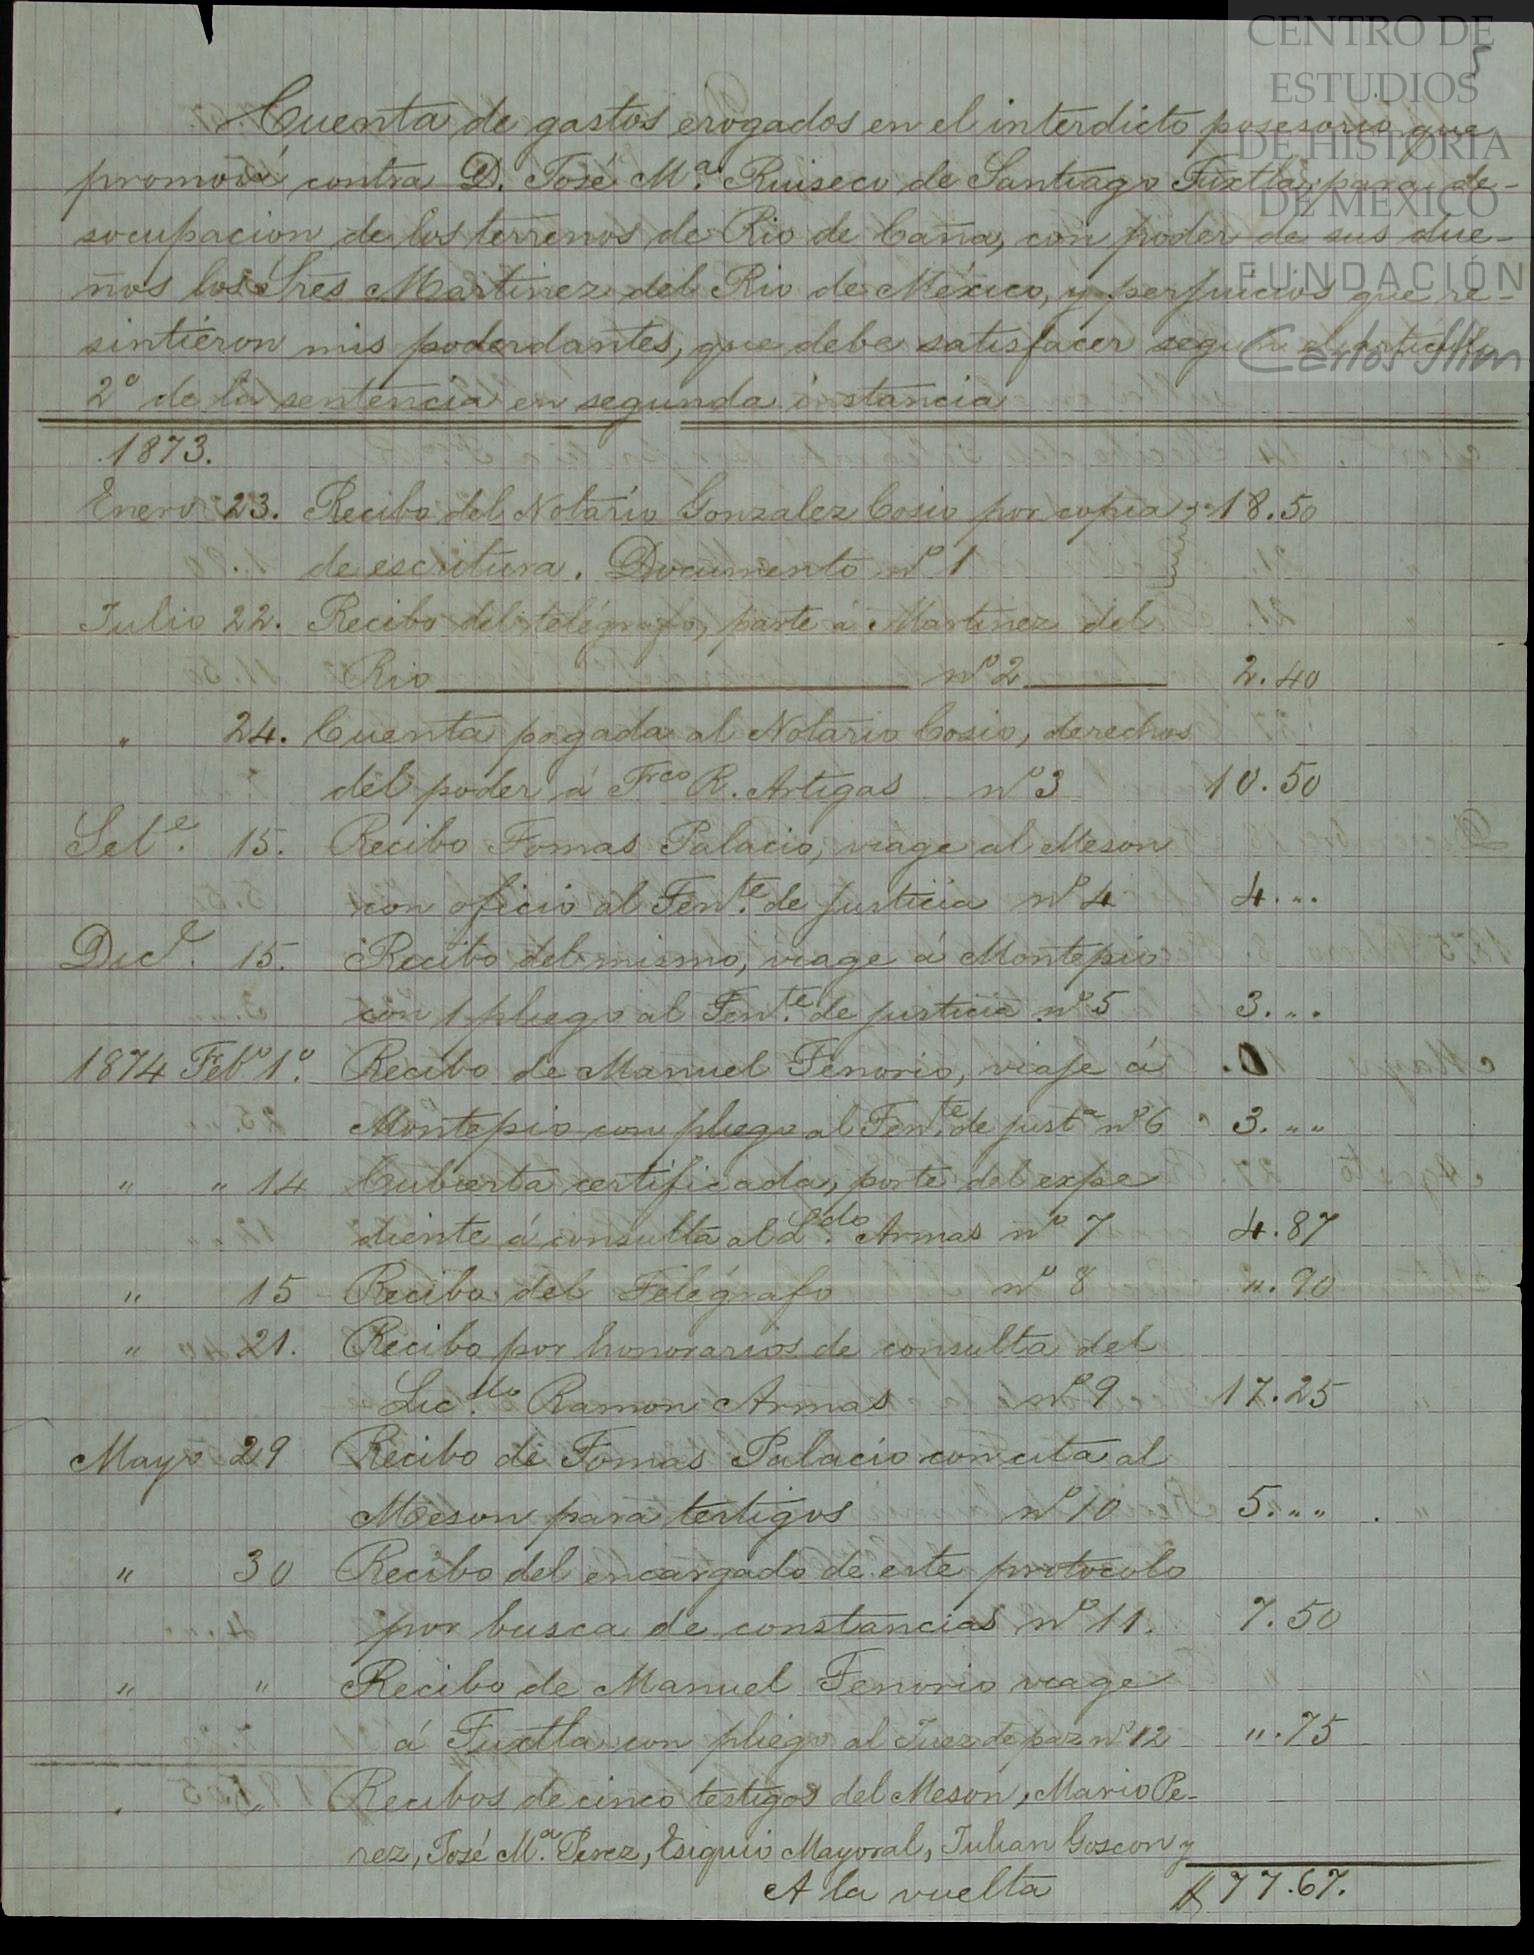 CENTRO DE
ESTUDIOS
DE HISTORIA
DE MÉXICO
FUNDACIÓN
Carlos Slim
5
Cuenta de gastos erogados en el interdicto posesorio que
promoví contra D. José M.ª Ruiseco de Santiago Tuxtla, para de-
socupacion de los terrenos de Rio de Caña, con poder de sus due-
ños los Sres Martinez del Rio de México, y perjuicios que re-
sintieron mis poderdantes, que debe satisfacer segun el articulo
2º de la sentencia en segunda instancia
1873.
Enero 23. Recibo del Notario Gonzalez Cosio por copia 18.50
de escritura. Documento nº 1
Julio 22. Recibo del telégrafo, parte á Martinez del
Rio nº 2 2.40
" 24. Cuenta pagada al Notario Cosio, derechos
del poder á Frco R. Artigas nº 3 10.50
Sete. 15. Recibo Tomas Palacio, viage al Meson
con oficio al Tente. de justicia nº 4 4. " "
Dice. 15. Recibo del mismo, viage á Montepio
con 1 pliego al Tente. de justicia nº 5 3. " "
1874 Febº 1º. Recibo de Manuel Tenorio, viaje á .0
Montepio con pliego al Tente. de justª nº 6 3. " "
" " 14 Cubierta certificada, porte del expe
diente á consulta al Ldo. Armas nº 7 4.87
" 15 Recibo del Telégrafo nº 8 ". 90
" 21. Recibo por honorarios de consulta del
Licdo. Ramon Armas nº 9 17.25
Mayo 29 Recibo de Tomas Palacio con cita al
Meson para testigos nº 10 5. " "
" 30 Recibo del encargado de este protocolo
por busca de constancias nº 11. 7.50
" " Recibo de Manuel Tenorio viage
á Tuxtla con pliego al Juez de paz nº 12 ". 75
" " Recibos de cinco testigos del Meson, Mario Pe-
rez, José M.ª Perez, Esiquio Mayoral, Julian Goscon y
A la vuelta $ 77.67.